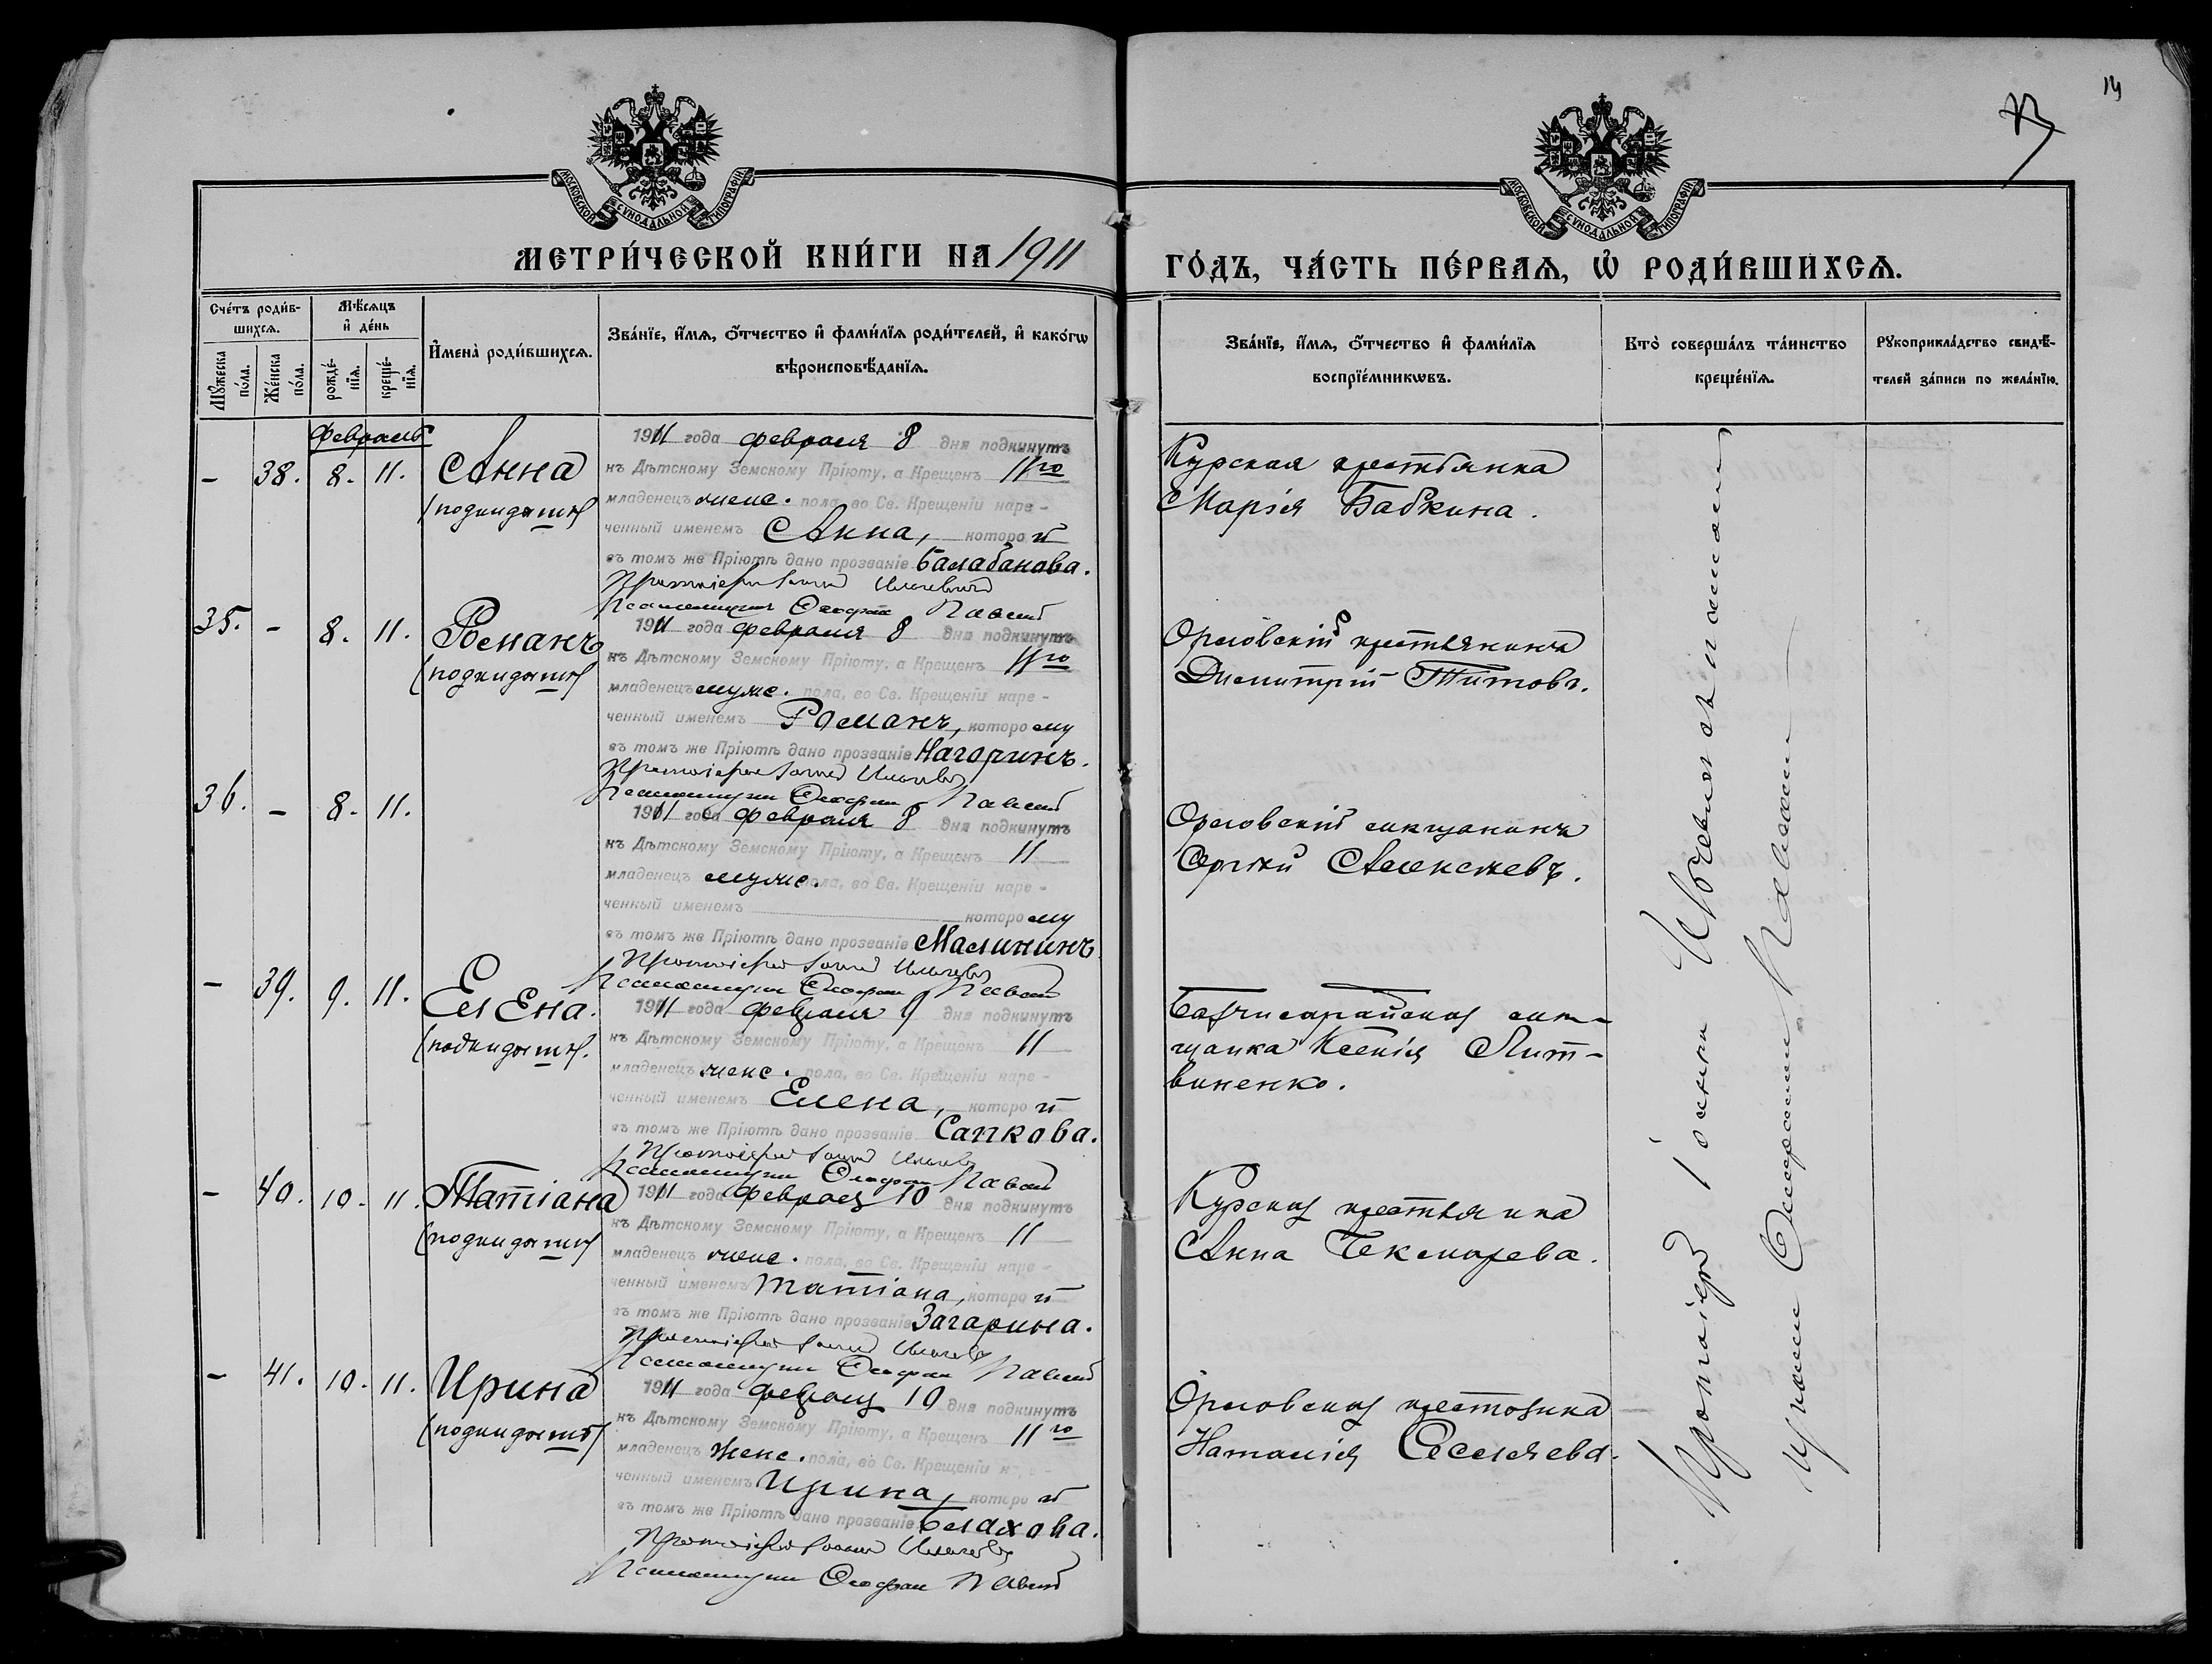 14
МОСКОВСКОЙ СѴНОДАЛЬНОЙ ТИПОГРАФІИ
МОСКОВСКОЙ СѴНОДАЛЬНОЙ ТИПОГРАФІИ
МЕТРИ́ЧЕСКОЙ КНИ́ГИ НА 1911
ГО́ДЪ, ЧА́СТЬ ПЕ́РВАѦ, Ѽ РОДИ́ВШИХСѦ.
Сче́тъ роди́в-
шихсѧ.
Мꙋжеска
по́ла.
Же́нска
по́ла.
Мѣ́сѧцъ
и҆ де́нь
рожде́-
нїѧ.
креще́-
нїѧ.
И҆мена̀ роди́вшихсѧ.
Зва́нїе, и҆́мѧ, ѻ҆́тчество и҆ фами́лїѧ роди́телей, и҆ како́гѡ
вѣроисповѣ́данїѧ.
Зва́нїе, и҆́мѧ, ѻ҆́тчество и҆ фами́лїѧ
воспрїе́мникѡвъ.
Кто̀ соверша́лъ та́инство
креще́нїѧ.
Рꙋкоприкла́дство свидѣ́-
телей за́писи по жела́нїю.
Февраль
- 38. 8. 11. Анна
(подкидышъ)
1911 года февраля 8 дня подкинутъ
къ Дѣтскому Земскому Пріюту, а Крещенъ 11го
младенецъ женс. пола, во Св. Крещеніи наре-
ченный именемъ Анна, которой
въ томъ же Пріютѣ дано прозваніе Балабанова.
Протоіерей Іоаннъ
Псаломщикъ Павскій
Курская крестьянка
Марія Бабкина.
35. - 8. 11. Романъ
(подкидышъ)
1911 года февраля 8 дня подкинутъ
къ Дѣтскому Земскому Пріюту, а Крещенъ 11го
младенецъ мужс. пола, во Св. Крещеніи наре-
ченный именемъ Романъ, которому
въ томъ же Пріютѣ дано прозваніе Нагоринъ.
Протоіерей Іоаннъ
Псаломщикъ Павскій
Орловскій крестьянинъ
Димитрій Титовъ.
36. - 8. 11.
1911 года февраля 8 дня подкинутъ
къ Дѣтскому Земскому Пріюту, а Крещенъ 11
младенецъ мужс. пола, во Св. Крещеніи наре-
ченный именемъ которому
въ томъ же Пріютѣ дано прозваніе Малининъ
Протоіерей Іоаннъ
Псаломщикъ Павскій
Орловскій мѣщанинъ
Сергѣй Алексѣевъ.
- 39. 9. 11. Елена.
(подкидышъ).
1911 года февраля 9 дня подкинутъ
къ Дѣтскому Земскому Пріюту, а Крещенъ 11
младенецъ женс. пола, во Св. Крещеніи наре-
ченный именемъ Елена, которой
въ томъ же Пріютѣ дано прозваніе Сапкова.
Протоіерей Іоаннъ
Псаломщикъ Павскій
Бахчисарайская мѣ-
щанка Ксенія Лит-
виненко.
- 40. 10. 11. Татіана
(подкидышъ)
1911 года февраля 10 дня подкинутъ
къ Дѣтскому Земскому Пріюту, а Крещенъ 11
младенецъ женс. пола, во Св. Крещеніи наре-
ченный именемъ Татіана, которой
въ томъ же Пріютѣ дано прозваніе Загарина.
Протоіерей Іоаннъ
Псаломщикъ Павскій
Курская крестьянка
Анна Чекмарева.
- 41. 10. 11. Ирина
(подкидышъ)
1911 года февраля 10 дня подкинутъ
къ Дѣтскому Земскому Пріюту, а Крещенъ 11го
младенецъ женс. пола, во Св. Крещеніи наре-
ченный именемъ Ирина, которой
въ томъ же Пріютѣ дано прозваніе Белахова.
Протоіерей Іоаннъ
Псаломщикъ Павскій
Орловская крестьянка
Наталія Селяева.
Протоіерей Іоаннъ съ псалом-
щикомъ Павскимъ